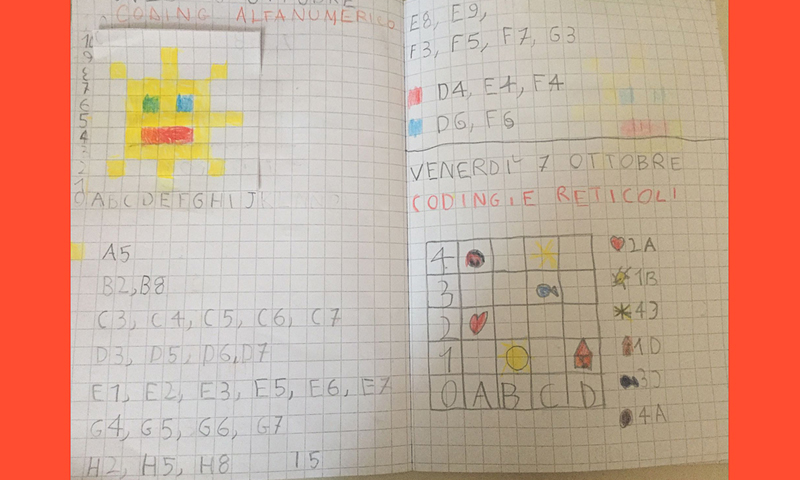 OTTOBRE
CODING ALFANUMERICO
10
9
8
7
6
5
4
3
2
1
0 A B C D E F G H I J
A5
B2, B8
C3, C4, C5, C6, C7
D3, D5, D6, D7
E1, E2, E3, E5, E6, E7
G4, G5, G6, G7
H2, H5, H8 I5
E8, E9,
F3, F5, F7, G3
D4, E4, F4
D6, F6
VENERDI 7 OTTOBRE
CODING E RETICOLI
4
3
2
1
0 A B C D
2A
1B
1D
4A